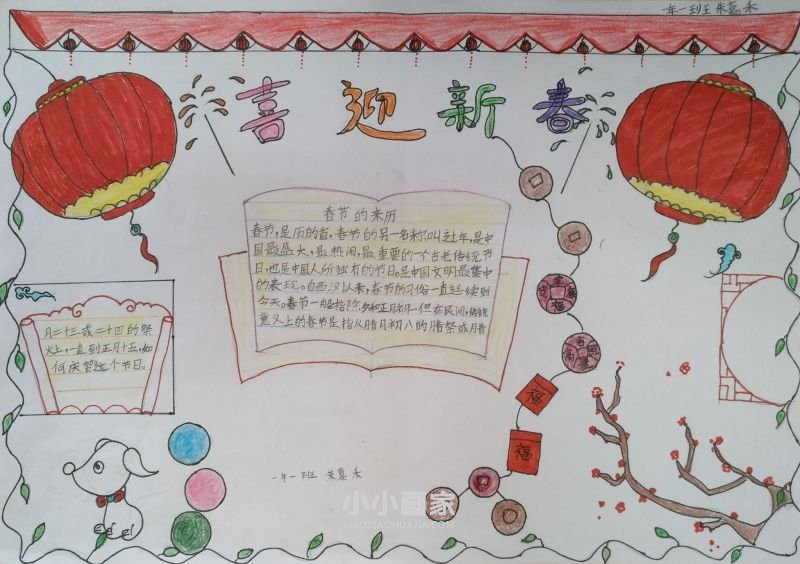 年一班 朱嘉禾
喜迎新春
春节的来历
春节,是历的首,春节的另一名称叫过年,是中
国最盛大、最热闹,最重要的一个古老传统节
日,也是中国人所独有的节日。是中国文明最集中
的表现。自西汉以来,春节的习俗一直延续到
今天。春节一般指除夕和正月初一但在民间,传统
意义上的春节是指从腊月初八的腊祭或腊
月二十三或二十四的祭
火土,一直到正月十五,如
何庆贺这个节日。
福
福
一年一班 朱嘉禾
小小画家
XIAOXIAOHUAJIA.COM